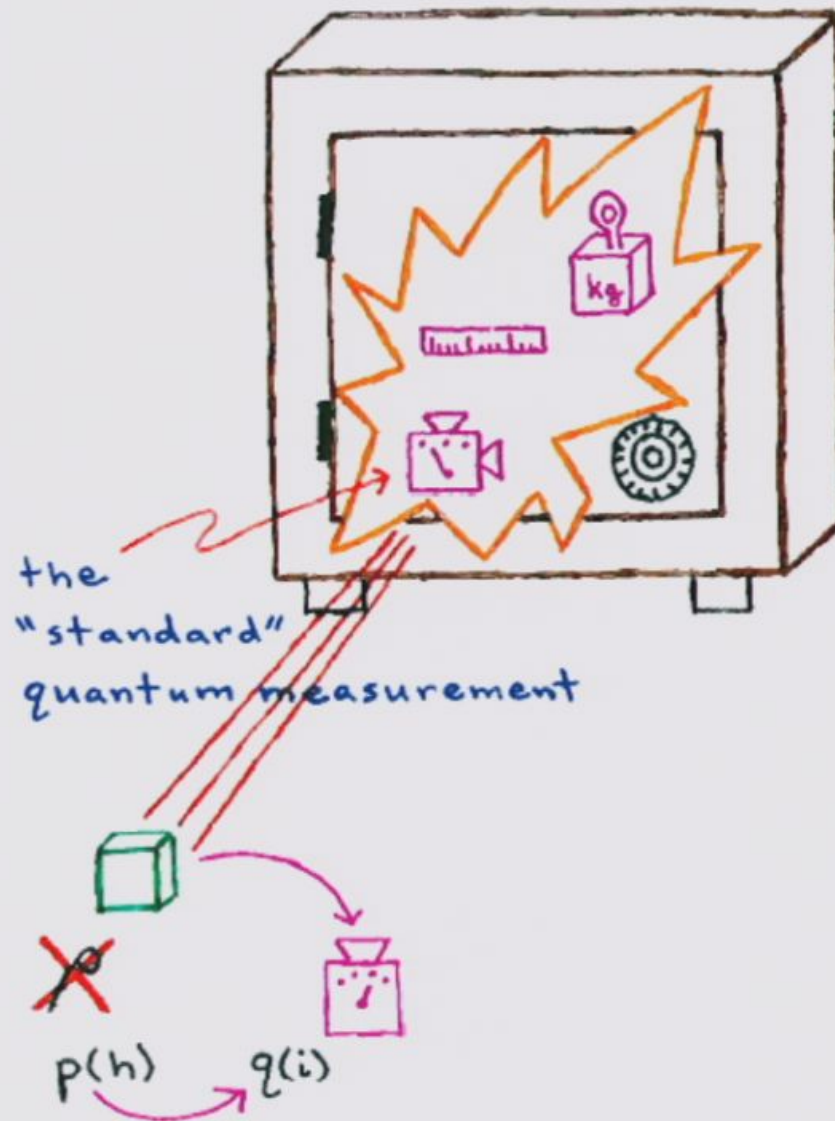 kg
the
"standard"
quantum measurement
p(h) q(i)